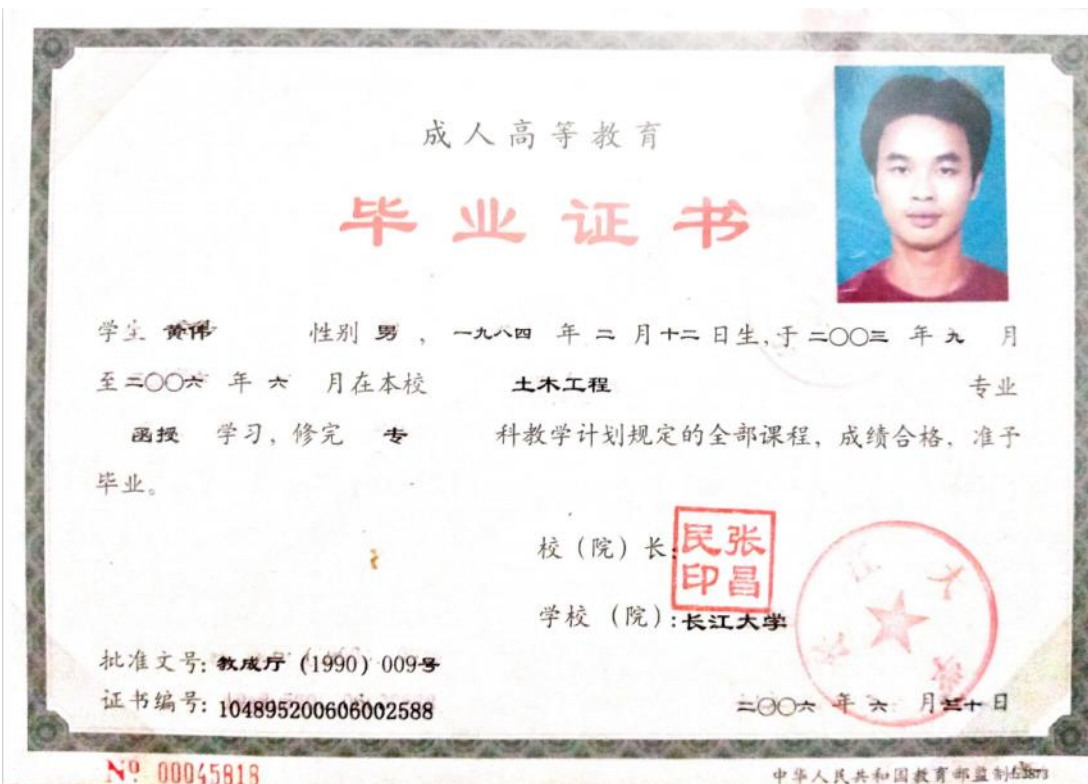 成人高等教育
毕业证书
学生 黄伟 性别 男 , 一九八四 年 二 月 十二 日生,于 二〇〇三 年 九 月
至 二〇〇六 年 六 月在本校 土木工程 专业
函授 学习, 修完 专 科教学计划规定的全部课程, 成绩合格, 准予
毕业。
校(院)长:
张昌民印
学校 (院): 长江大学
长江大学
批准文号: 教成厅 (1990) 009号
证书编号: 104895200606002588
二〇〇六 年 六 月 三十 日
№ 00045818
中华人民共和国教育部监制